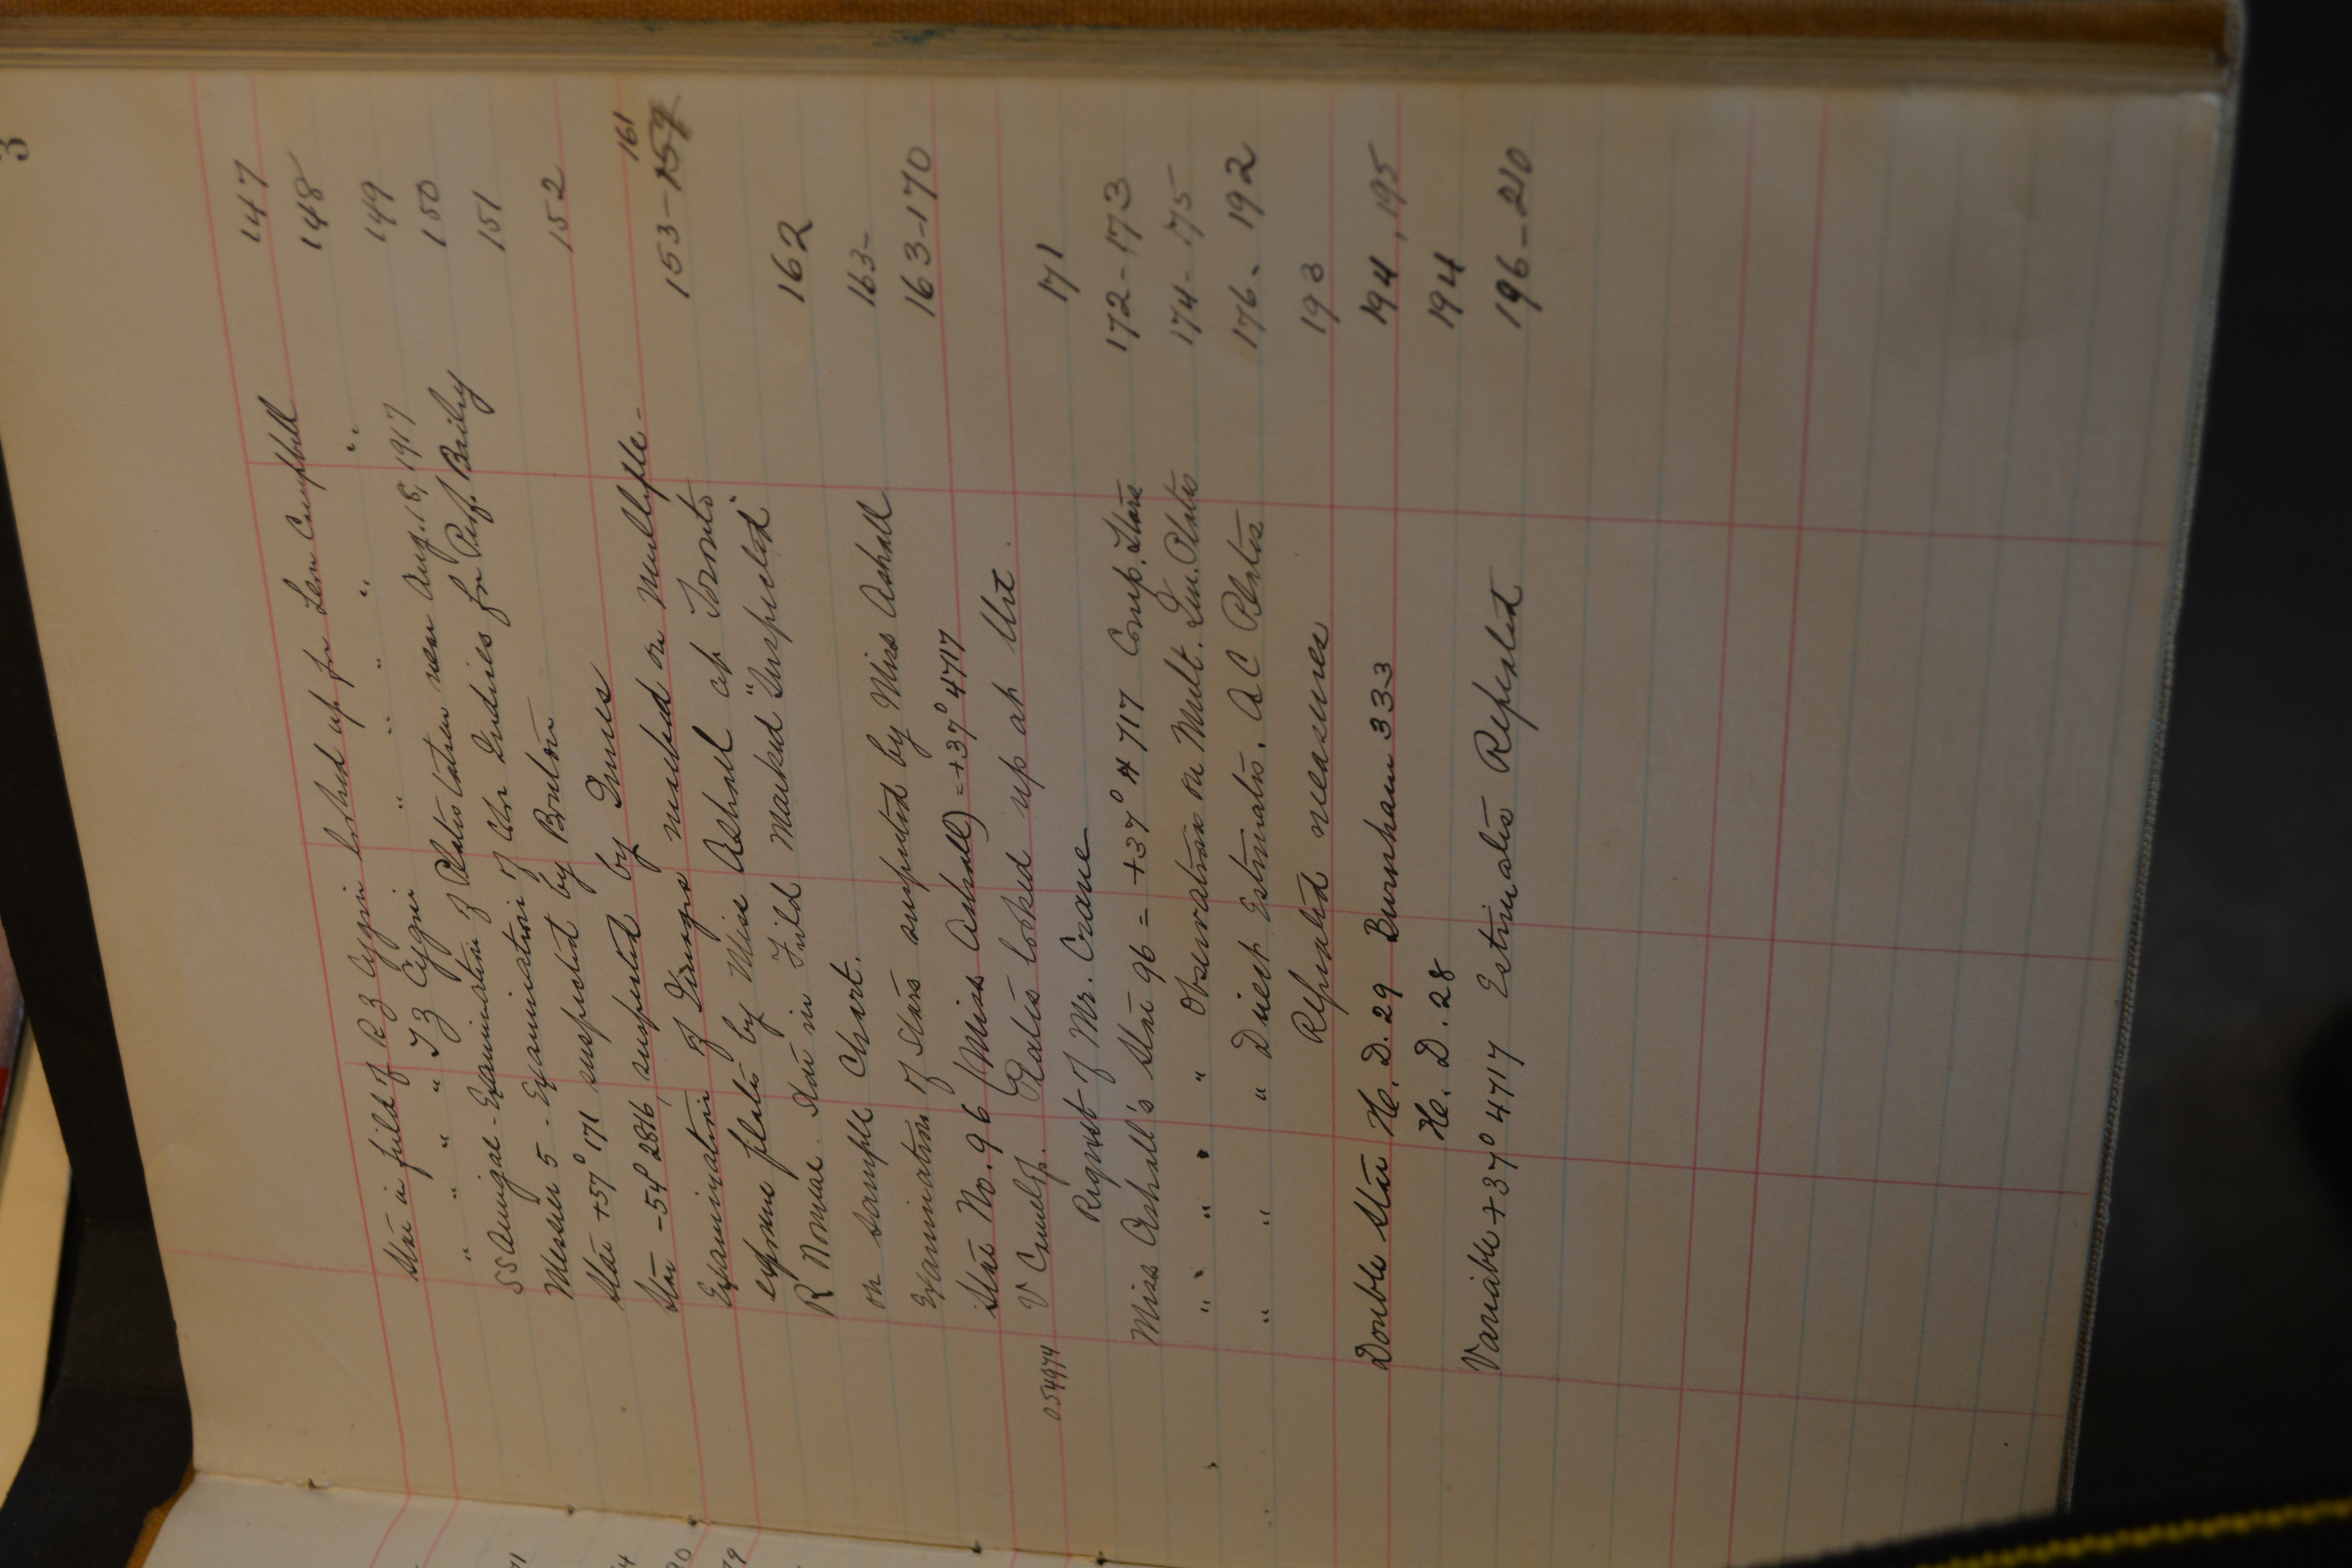 3
Star in field of RZ Cygni looked up for Leon Campbell 147
" " " " TZ Cygni " " " " " 148
SS Aurigae - Examination of Plates taken near Aug. 18, 1917 149
Messier 5 - Examination of Chr Indries for Prof. Bailey 150
Star +57° 171 suspected by Boulton 151
Star -54° 2816, suspected by Innes 152
Examination of Images marked on Multiple- 161
exposure plates by Miss Ashall at Toronto 153-159
R Normae. Star in Field Marked "Suspected"
on sample Chart. 162
Examination of Stars suspected by Miss Ashall 163-
Star No. 96 (Miss Ashall) = +37° 4717 163-170
054974 V Camelop. Plates looked up at the
Request of Mr. Crane 171
Miss Ashall's Star 96 = +37° 4717 Comp. Stars 172-173
" " " " " Observations on Mult. Im. Plates 174-175
" " " Direct Estimates. AC Plates 176-192
Repeated measures 193
Double Star H. D. 29 Burnham 333 194, 195
H. D. 28 194
Variable +37° 4717 Estimates Repeated 196-210
71
4
90
79